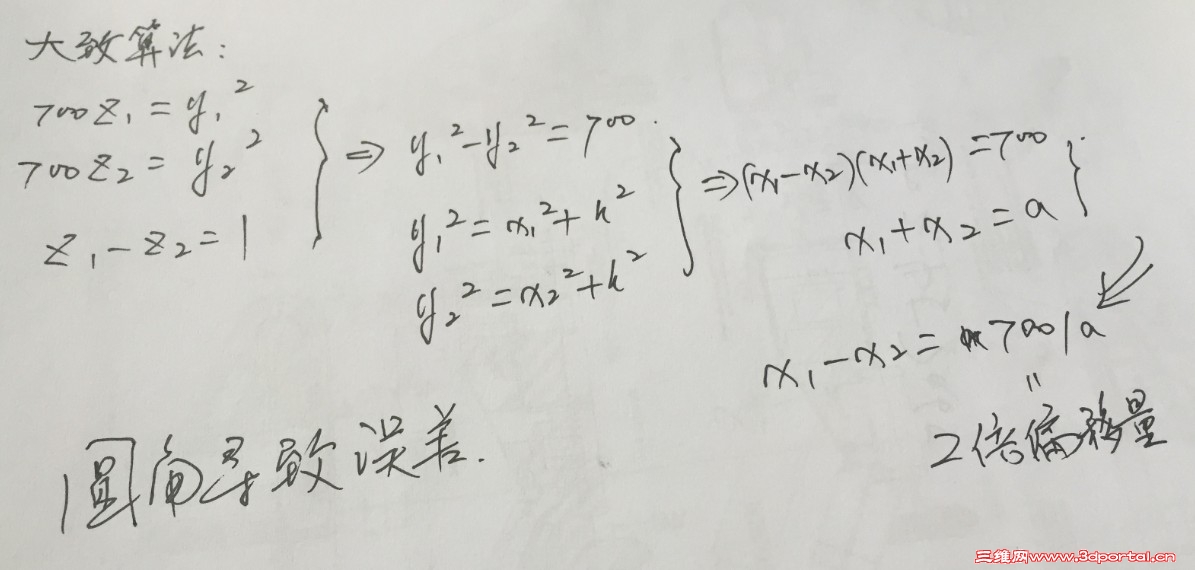 大致算法:
700Z₁ = y₁²
700Z₂ = y₂²
Z₁ - Z₂ = 1
} ⇒
y₁² - y₂² = 700.
y₁² = x₁² + h²
y₂² = x₂² + h²
} ⇒
(x₁-x₂)(x₁+x₂) = 700
x₁ + x₂ = a
}
x₁ - x₂ = 700/a
=
2倍偏移量
圆角导致误差.
三维网www.3dportal.cn